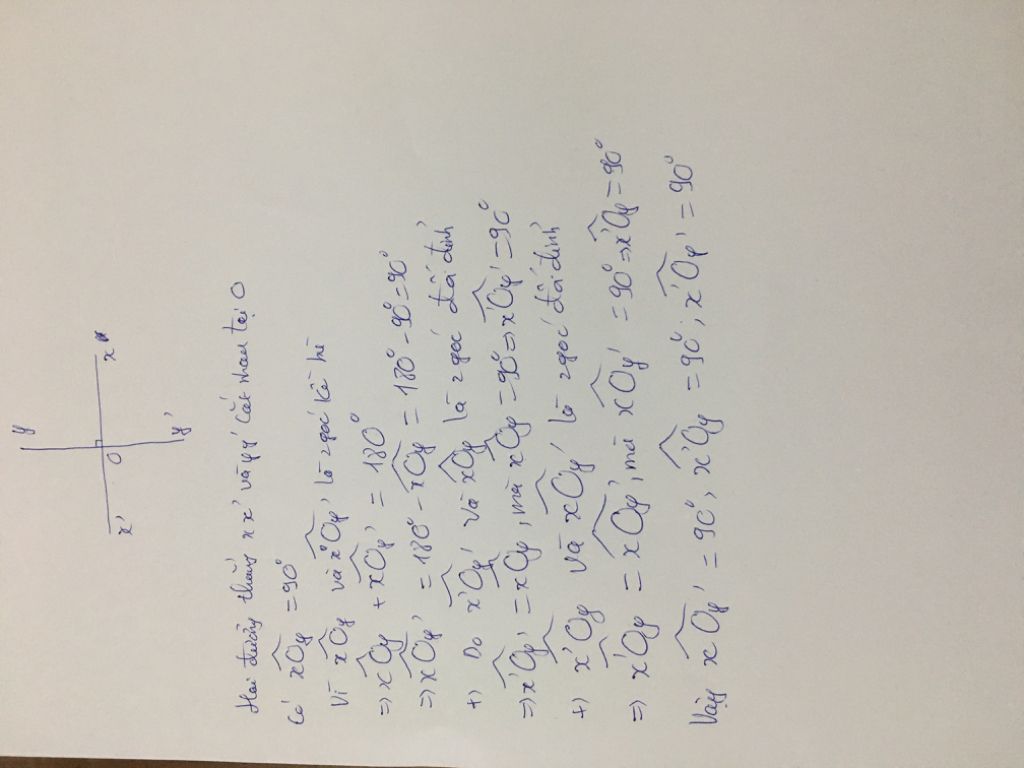 y
x' O x
y'
Hai đường thẳng xx' và yy' cắt nhau tại O
Có xOy = 90°
Vì xOy và xOy' là 2 góc kề bù
=> xOy + xOy' = 180°
=> xOy' = 180° - xOy = 180° - 90° = 90°
+) Do x'Oy' và xOy là 2 góc đối đỉnh
=> x'Oy' = xOy, mà xOy = 90° => x'Oy' = 90°
+) x'Oy và xOy' là 2 góc đối đỉnh
=> x'Oy = xOy', mà xOy' = 90° => x'Oy = 90°
Vậy xOy' = 90°, x'Oy = 90°; x'Oy' = 90°